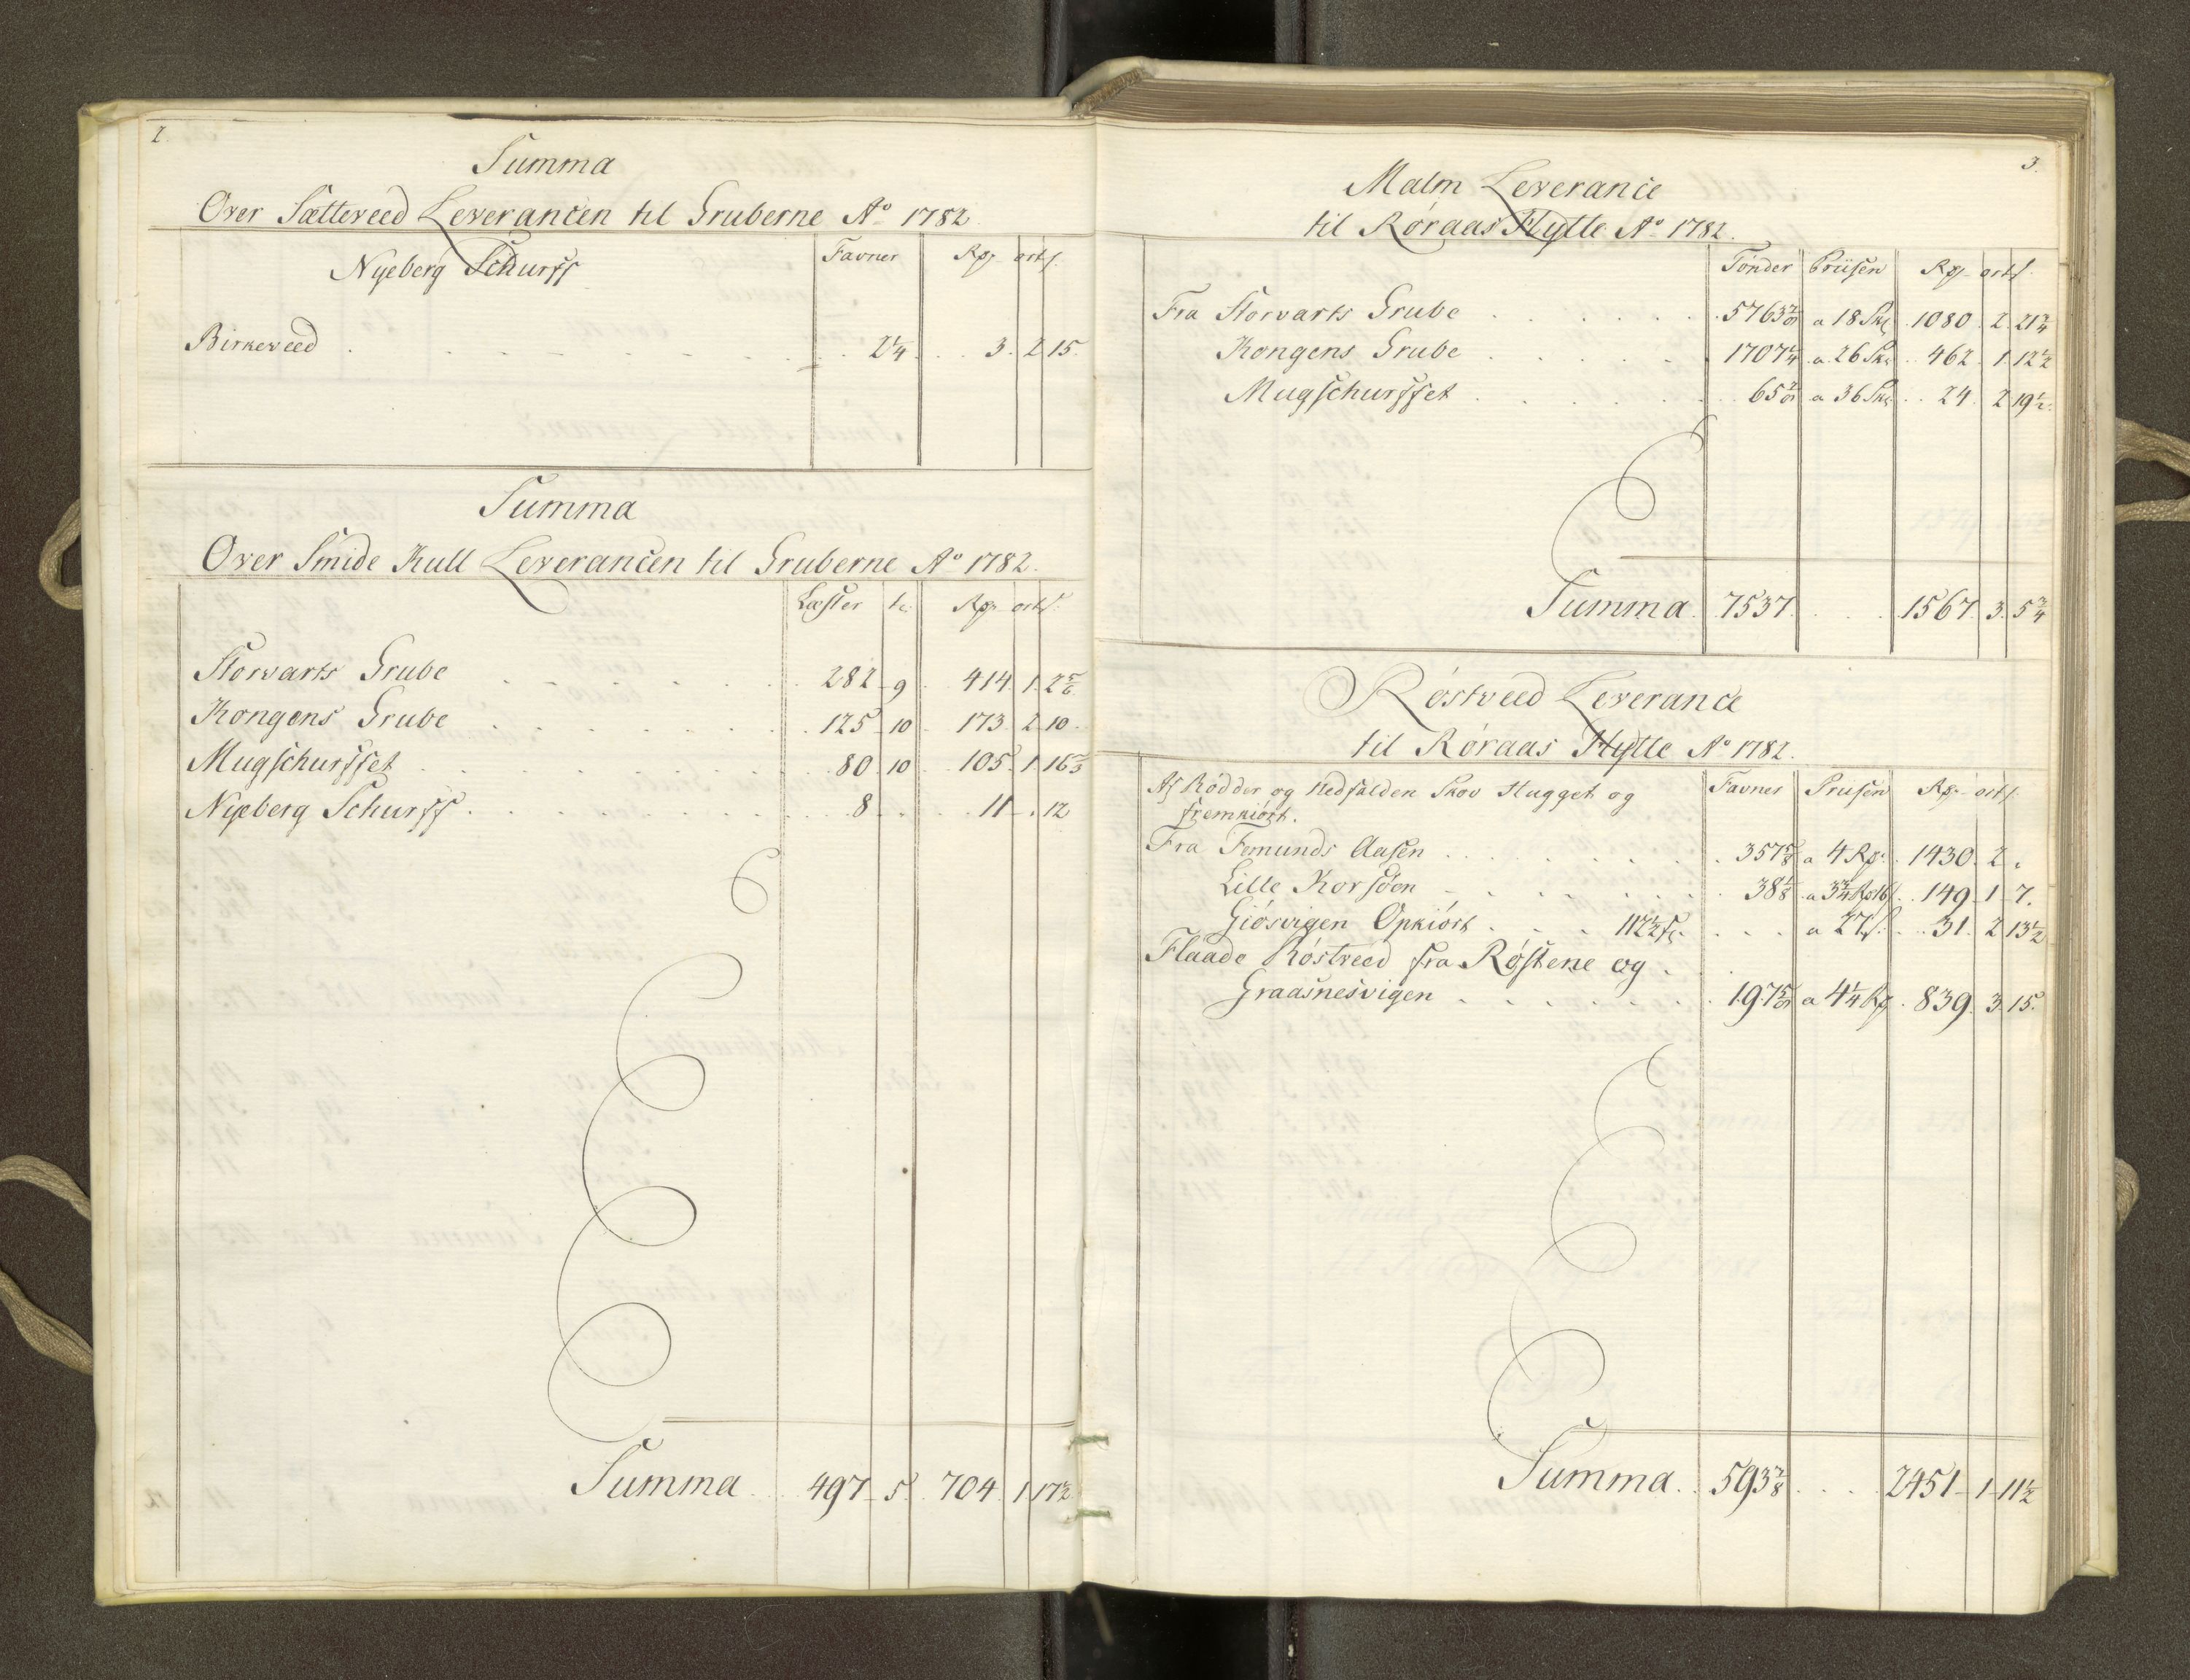 2.
Summa
Over Sætteveed Leverancen til Gruberne Ao 1782
Nyeberg Schurff Favner Rdr ort s.
Birkeveed 2 1/4 3. 2 15.
Summa
Over Smide Kull Leverancen til Gruberne Ao 1782.
Læster tr. Rdr ort s.
Storvarts Grube 282 9 414 1. 2 5/6
Kongens Grube 125 10 173 2 10.
Mugschurffet 80 10 105 1 16 2/3
Nyeberg Schurff 8 11 12
Summa 497 5. 704 1 17 1/2
3.
Malm Leverance
til Røraas Hytte Ao 1782.
Tønder Priisen Rdr ort s.
Fra Storvarts Grube 5763 7/8 a 18 Sk. 1080. 2. 21 3/4
Kongens Grube 1707 1/4 a 26 Sk. 462 1. 12 1/2
Mugschurffet 65 7/8 a 36 Sk. 24. 2 19 1/2.
Summa 7537. 1567. 3. 5 3/4
Røstveed Leverance
til Røraas Hytte Ao 1782.
Af Rødder og Nedfalden Skov Hugget og Favner Priisen Rdr ort s.
fremkiørt.
Fra Femunds Aasen 357 5/8 a 4 Rdr. 1430. 2.
Lille Korsøen 38 1/8 a 3 3/4 Rdr 16 s. 149 1 7.
Giøsvigen Opkiørt 112 1/2 f. a 27 s. 31. 2 13 1/2
Flaade Røstveed fra Røstene og
Graasnesvigen 197 5/8 a 4 1/4 Rdr 839. 3. 15.
Summa 593 3/8 2451 1 11 1/2